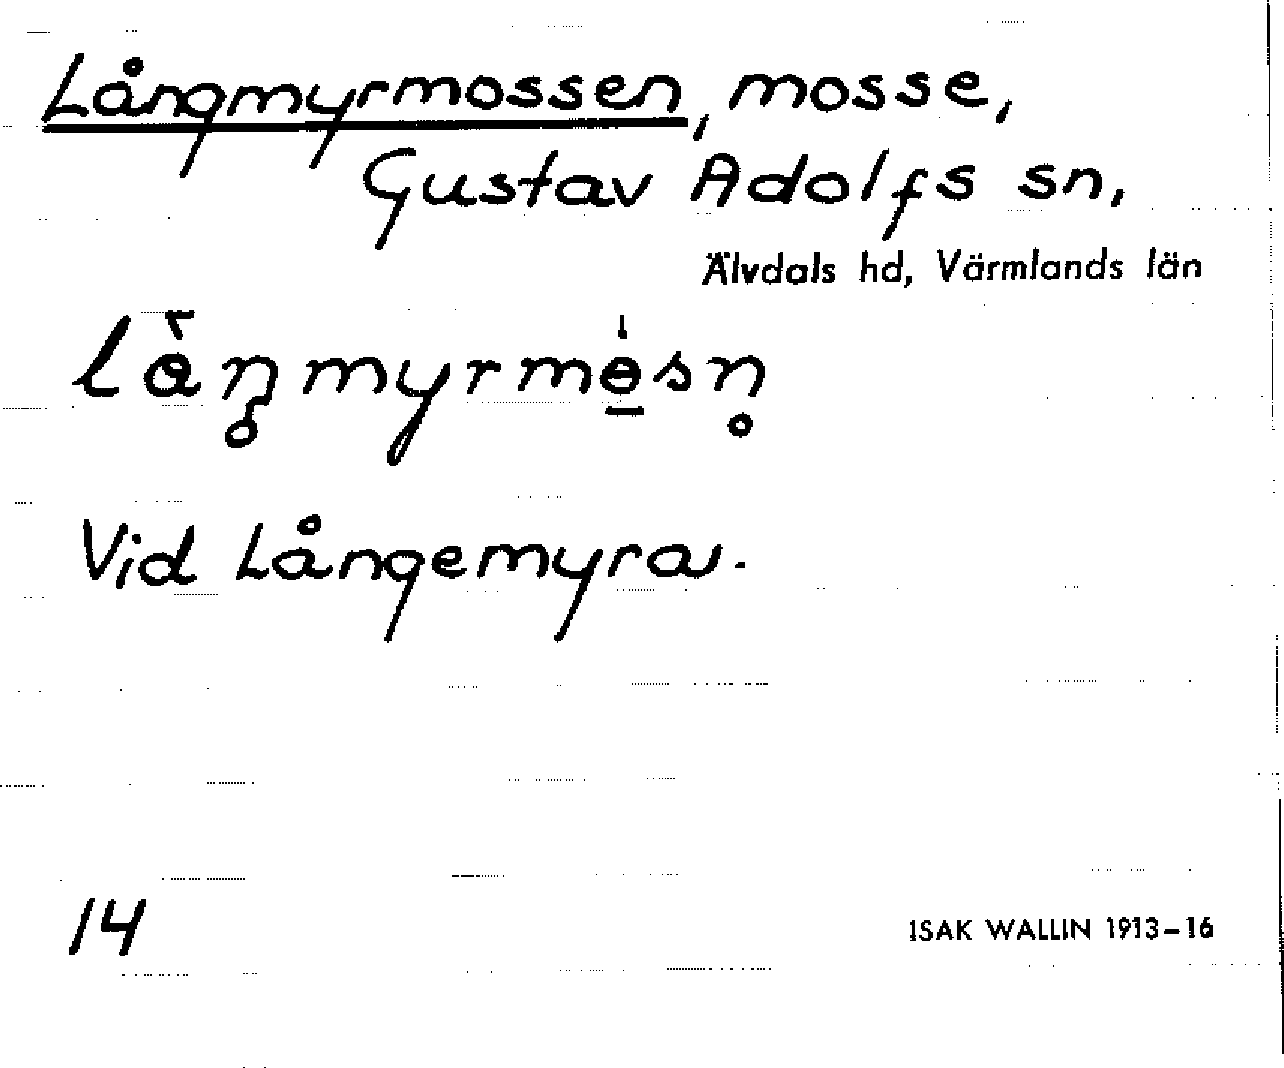 Långmyrmossen, mosse,
Gustav Adolfs sn,
Älvdals hd, Värmlands län
Vid Långemyra.
14
ISAK WALLIN 1913-16